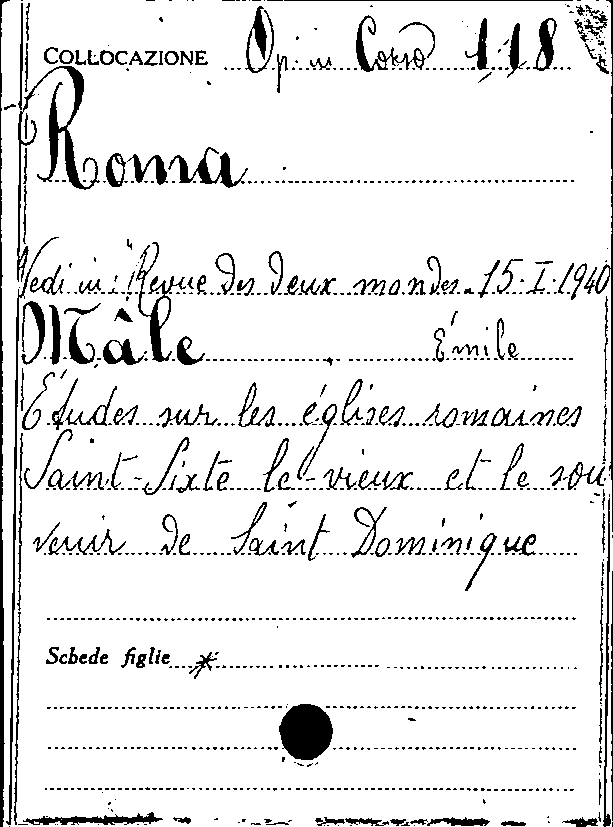 COLLOCAZIONE Op. in Corso 118
Roma
Vedi in: "Revue des deux mondes. 15.I.1940
Mâle Émile
Études sur les églises romaines
Saint-Sixte le-vieux et le sou
venir de Saint Dominique
Schede figlie *